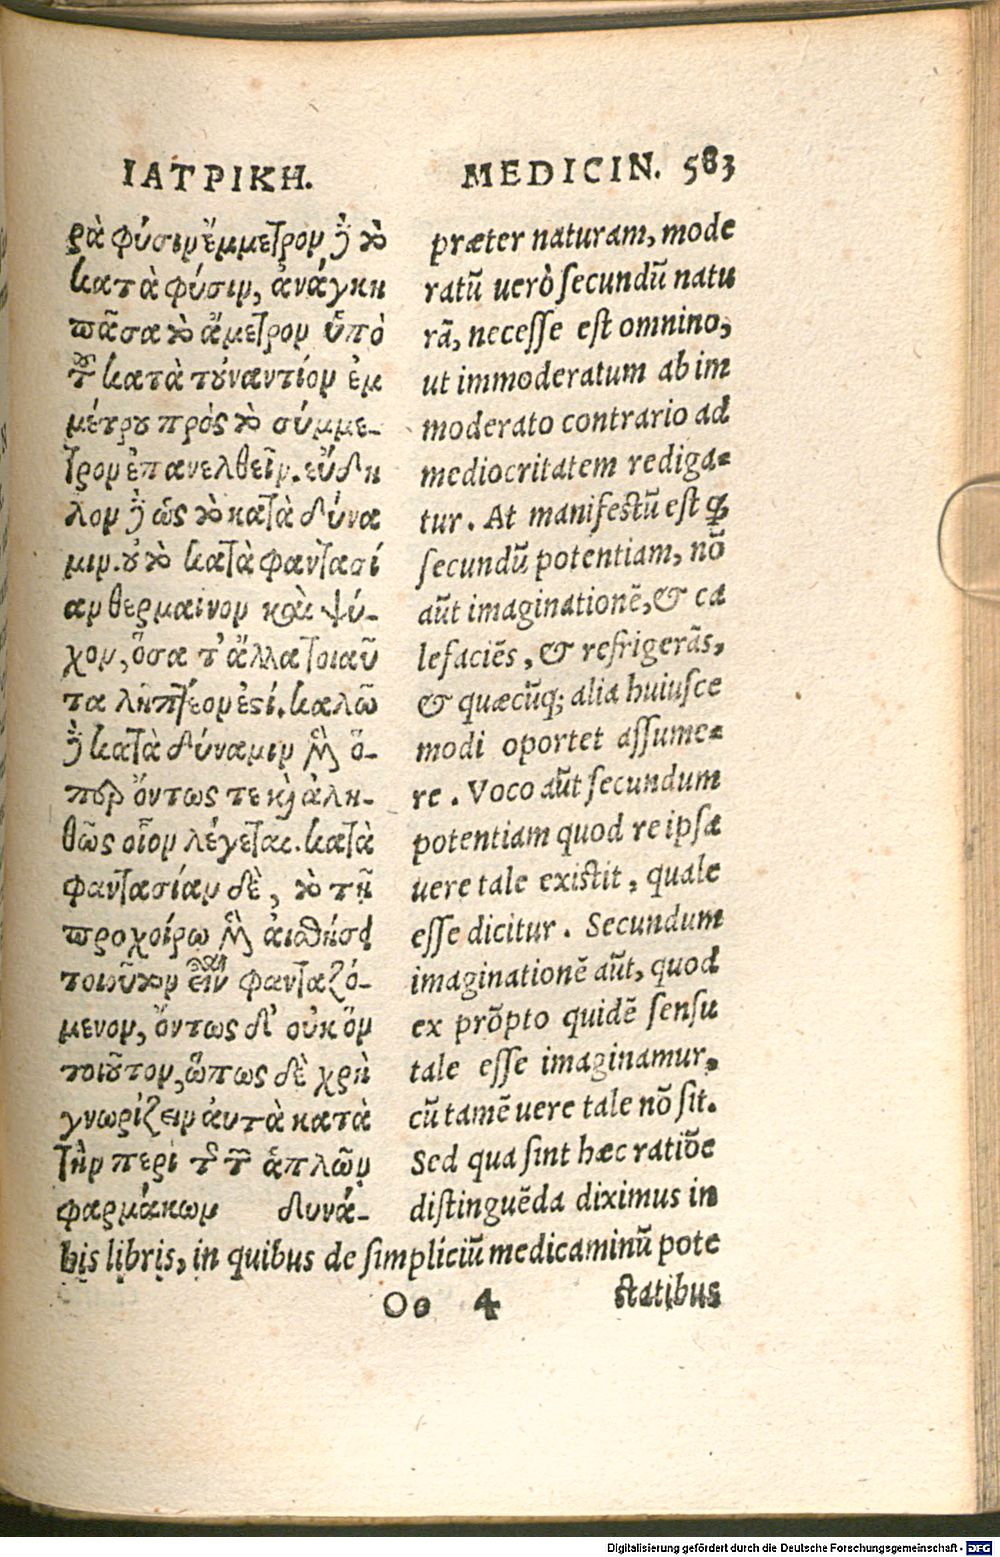 ΙΑΤΡΙΚΗ.
ρὰ φύσιν ἔμμετρον δὲ τὸ
κατὰ φύσιν, ἀνάγκη
πᾶσα τὸ ἄμετρον ὑπὸ
τοῦ κατὰ τοὐναντίον ἐμ
μέτρου πρὸς τὸ σύμμε-
τρον ἐπανελθεῖν. εὔδη
λον δὲ ὡς τὸ κατὰ δύνα
μιν. οὐ τὸ κατὰ φαντασί
αν θερμαίνον καὶ ψύ-
χον, ὅσα τ' ἄλλα τοιαῦ
τα ληπτέον ἐστί. καλῶ
δὲ κατὰ δύναμιν μὲν ὅ-
περ ὄντως τε καὶ ἀλη-
θῶς οἷον λέγεται. κατὰ
φαντασίαν δὲ, τὸ τῇ
προχοίρῳ μὲν αἰσθήσει
τοιοῦτον εἶναι φανταζό-
μενον, ὄντως δ' οὐκ ὂν
τοιοῦτον, ὅπως δὲ χρὴ
γνωρίζειν ἀυτὰ κατὰ
τὴν περὶ τῆς τῶν ἁπλῶν
φαρμάκων δυνά-
MEDICIN. 583
præter naturam, mode
ratũ uerò secundũ natu
rã, necesse est omnino,
ut immoderatum ab im
moderato contrario ad
mediocritatem rediga-
tur. At manifestũ est ꝙ
secundũ potentiam, nõ
aũt imaginationẽ, & ca
lefaciẽs, & refrigerãs,
& quæcũq; alia huiusce
modi oportet assume-
re. Voco aũt secundum
potentiam quod re ipsa
uere tale existit, quale
esse dicitur. Secundum
imaginationẽ aũt, quod
ex prõpto quidẽ sensu
tale esse imaginamur,
cũ tamẽ uere tale nõ sit.
Sed qua sint hæc ratiõe
distinguẽda diximus in
his libris, in quibus de simpliciũ medicaminũ pote
Oo 4 statibus
Digitalisierung gefördert durch die Deutsche Forschungsgemeinschaft - DFG